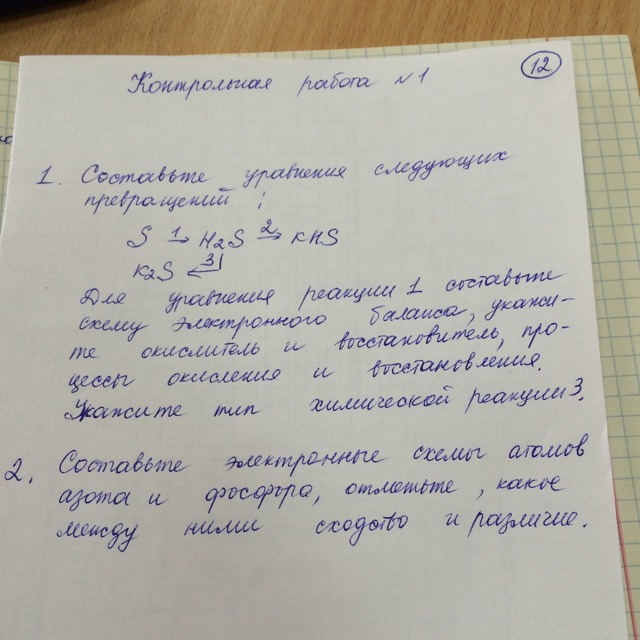 12
Контрольная работа №1
1. Составьте уравнения следующих
превращений:
S 1→ H2S 2→ KHS
K2S ←3
Для уравнения реакции 1 составьте
схему электронного баланса, укажи-
те окислитель и восстановитель, про-
цессы окисления и восстановления.
Укажите тип химической реакции 3.
2. Составьте электронные схемы атомов
азота и фосфора, отметьте, какое
между ними сходство и различие.